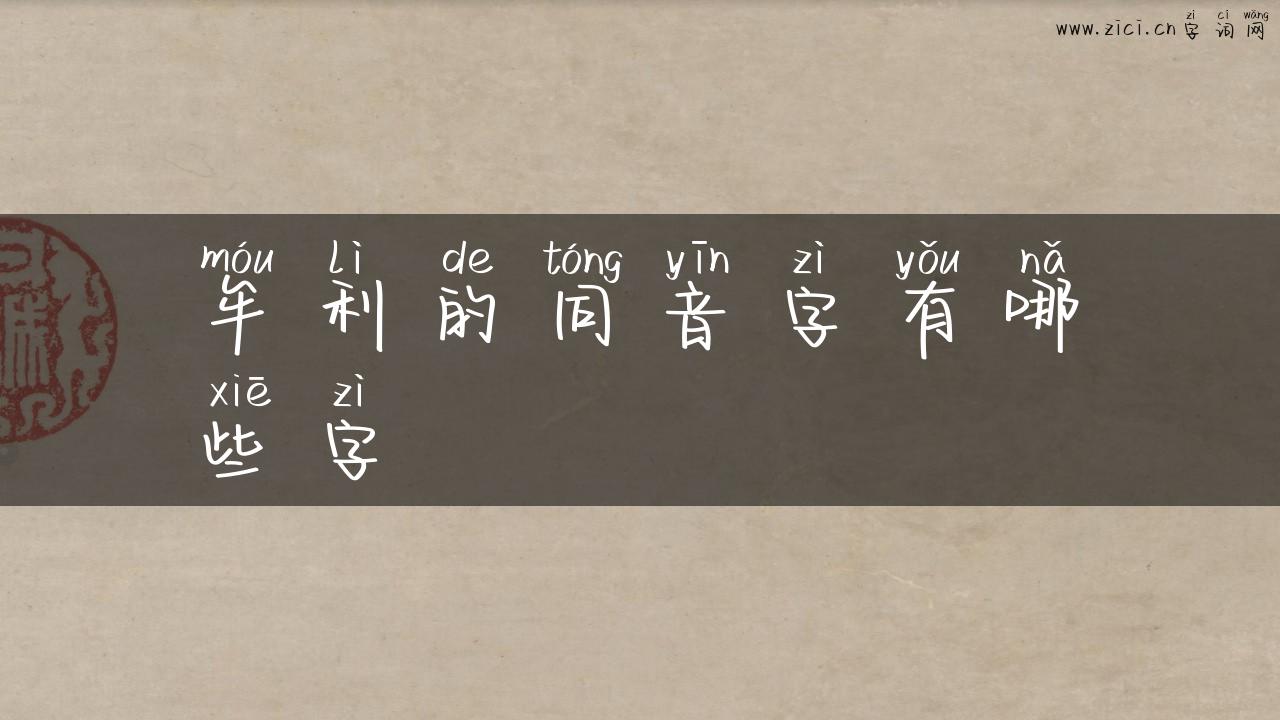 zì cí wǎng
www.zici.cn 字词网
móu lì de tóng yīn zì yǒu nǎ
牟利的同音字有哪
xiē zì
些字